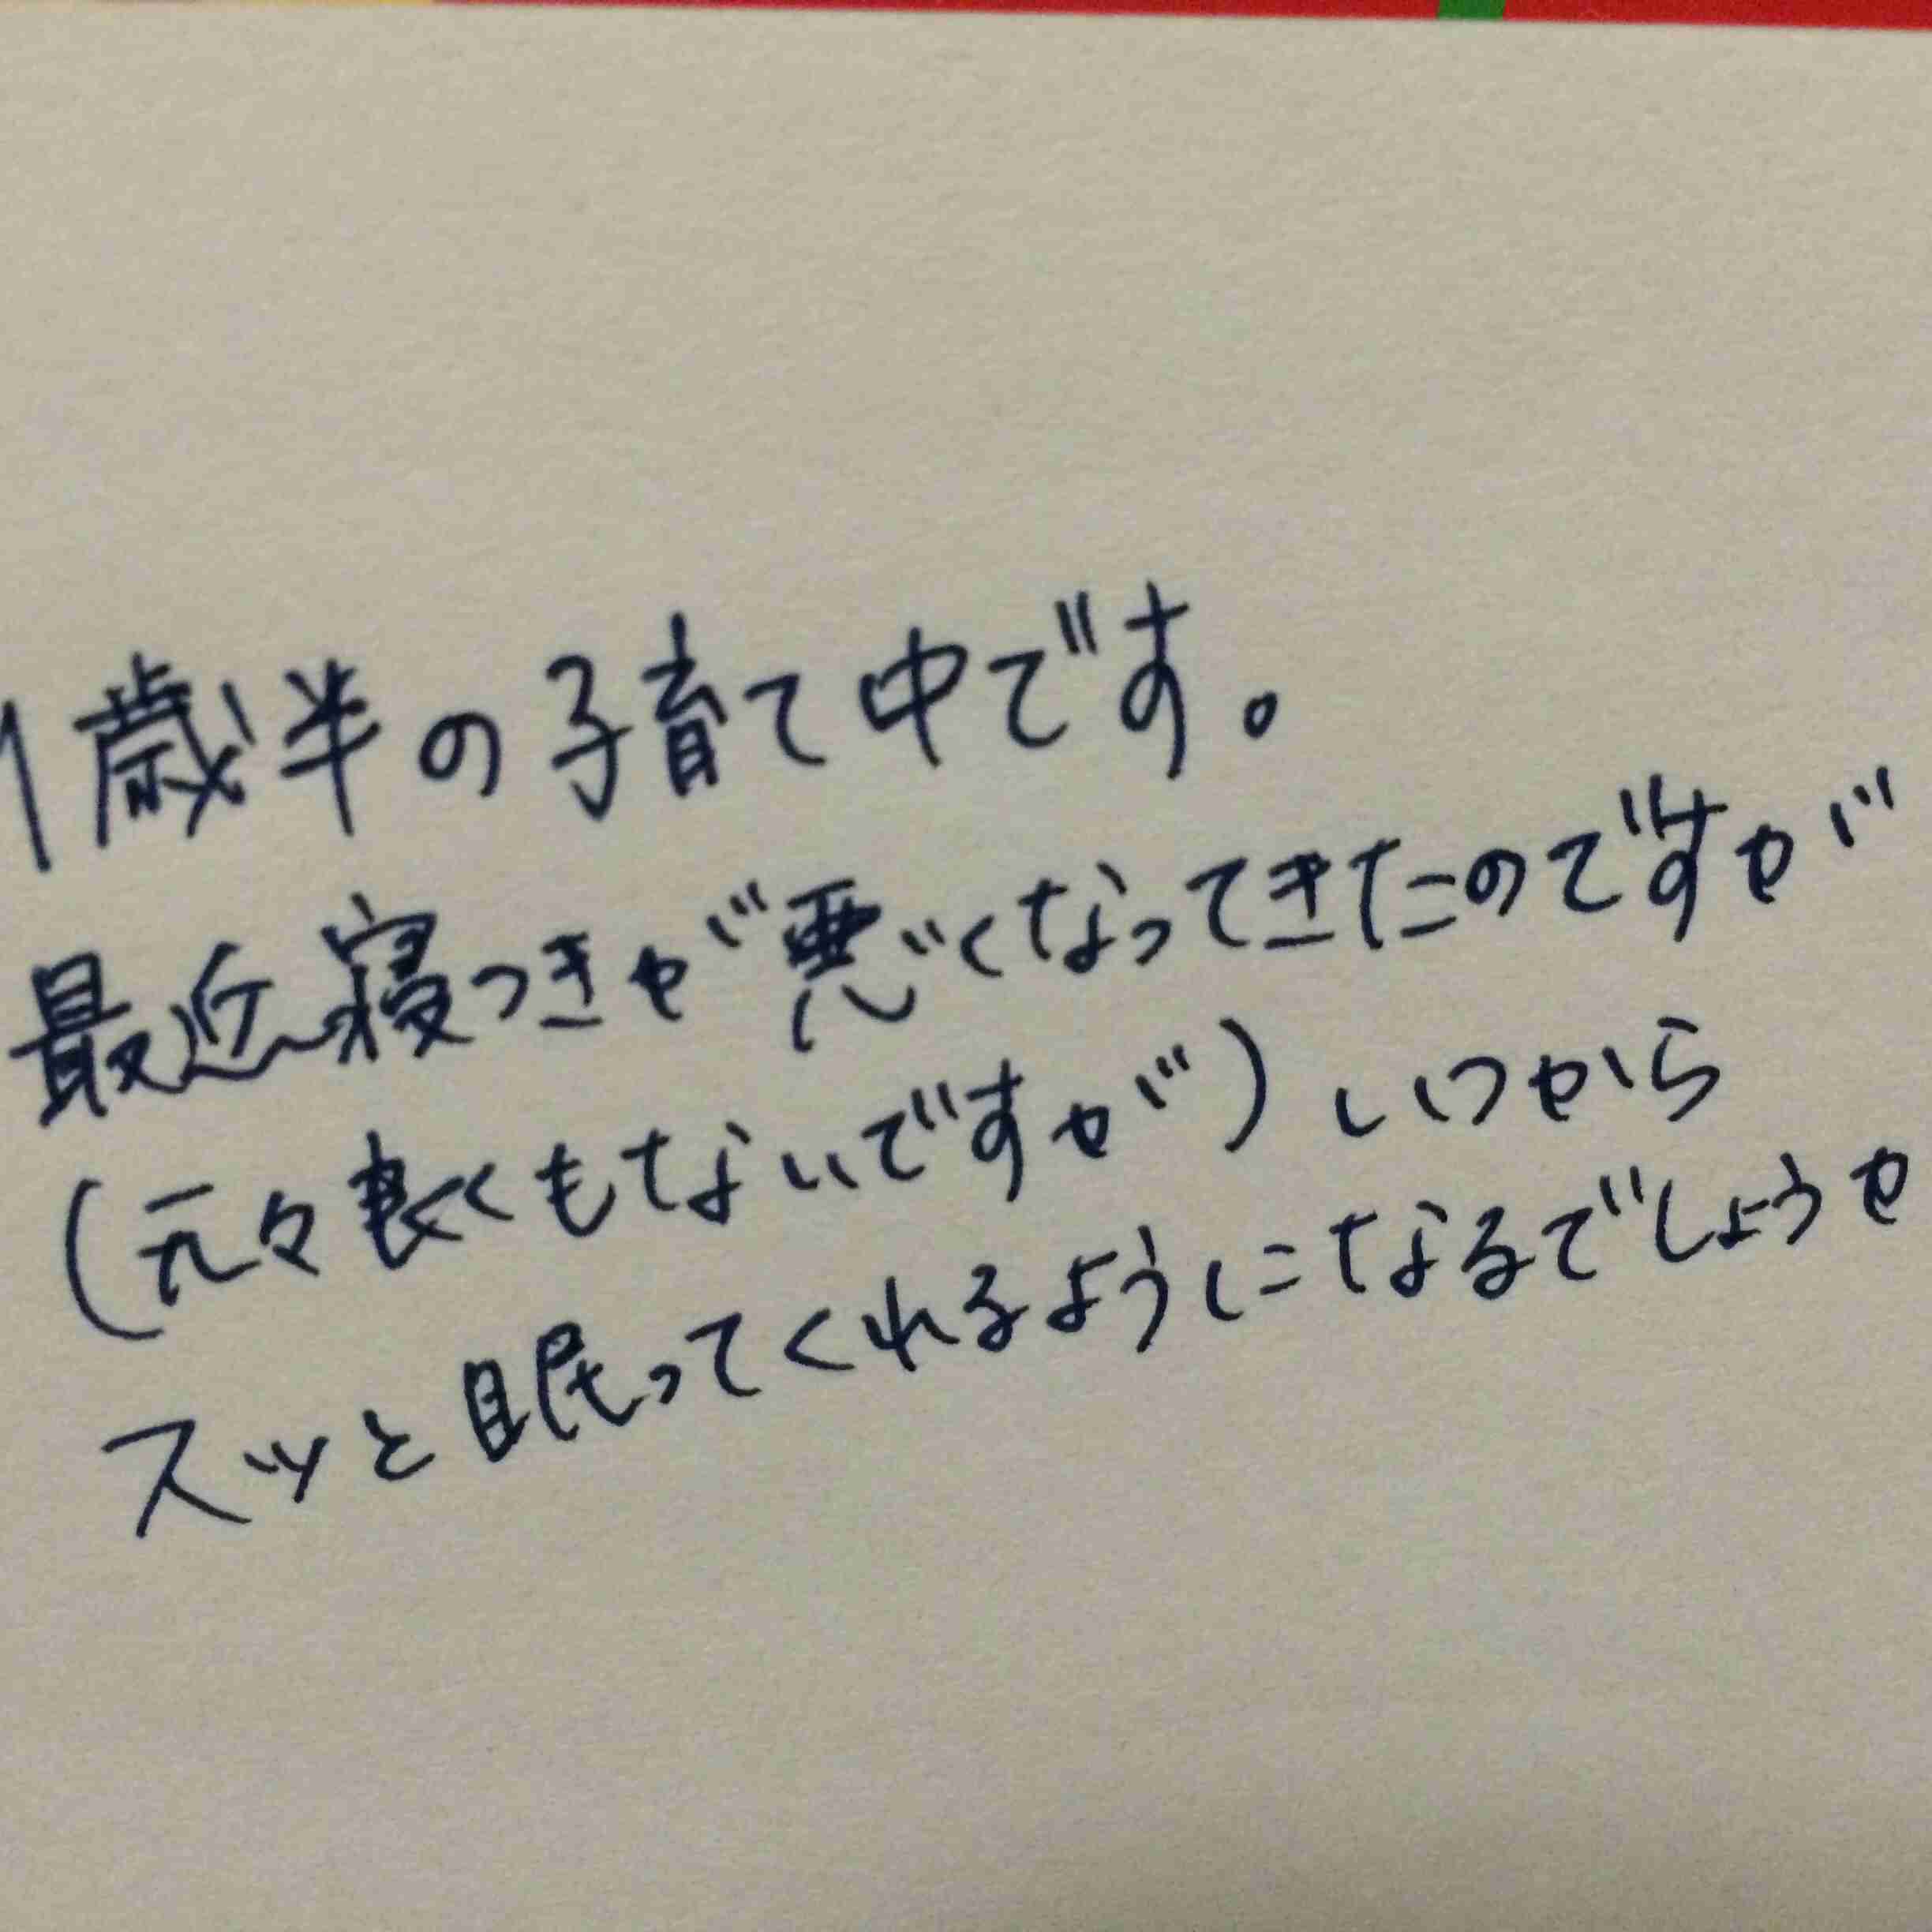 1歳半の子育て中です。
最近寝つきが悪くなってきたのですが
(元々良くもないですが)いつから
スッと眠ってくれるようになるでしょうか